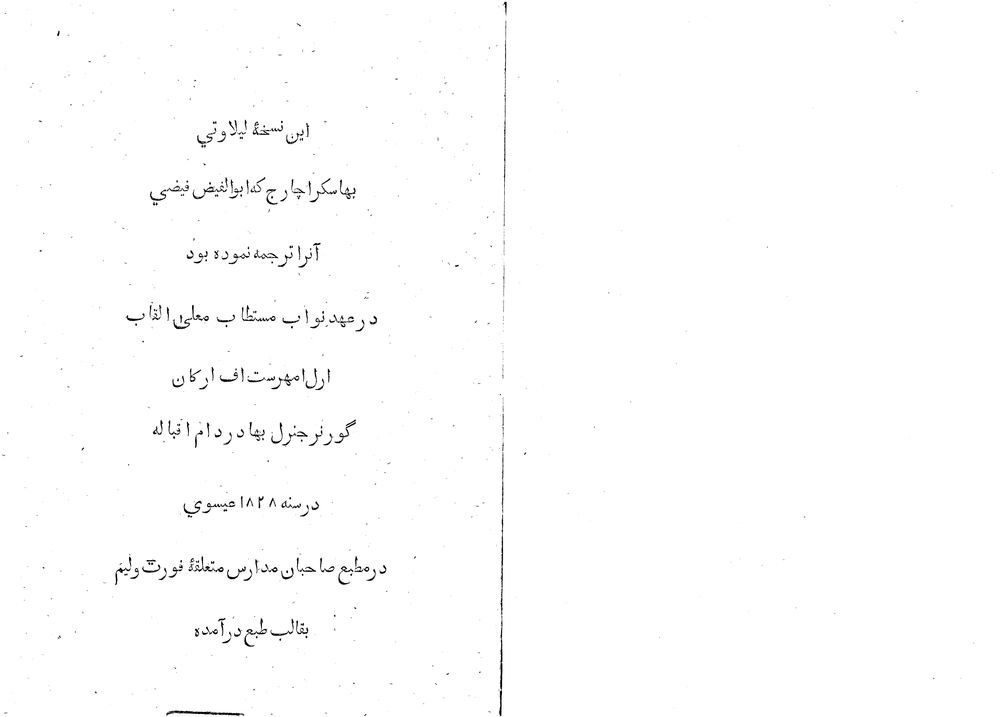 اين نسخهٔ ليلاوتي
بهاسكراچارج كه ابوالفيض فيضي
آنرا ترجمه نموده بود
در عهد نواب مستطاب معلیٰ القاب
ارل امهرست اف اركان
گورنر جنرل بهادر دام اقباله
در سنه ۱۸۲۸ عيسوي
در مطبع صاحبان مدارس متعلقهٔ فورٿ وليم
بقالب طبع درآمده